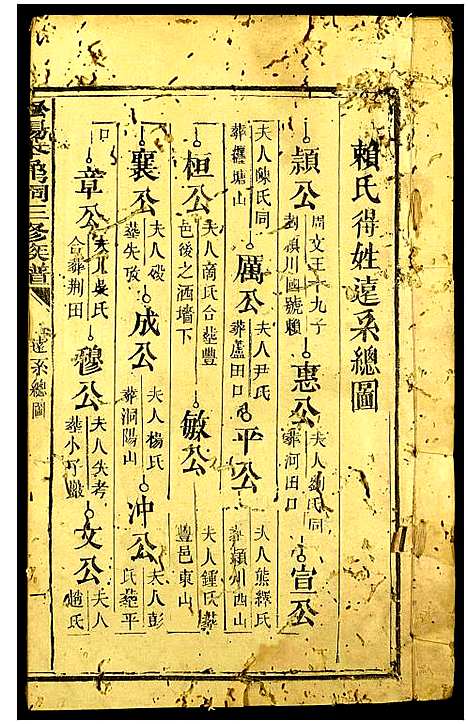 賴氏得姓遠系總圖
潁公 周文王十九子 封潁川國號賴 惠公 夫人劉氏同 葬河田口 宣公
夫人陳氏同 葬攞塘山 厲公 夫人尹氏 葬蘆田口 平公 夫人熊繹氏 葬潁州西山
桓公 夫人商氏合塟豐 邑後之酒墻下 敏公 夫人鍾氏塟 豐邑東山
襄公 夫人殁 塟失攷 成公 夫人楊氏 葬洞陽山 冲公 夫人彭 氏塟平
口 章公 夫人吳氏 合葬荆田 穆公 夫人失考 塟小 巖 文公 夫人 趙氏
三修族譜 遠系總圖